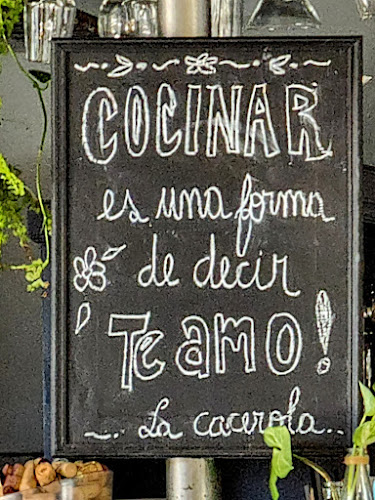 COCINAR
es una forma
de decir
Te amo!
La cacerola..